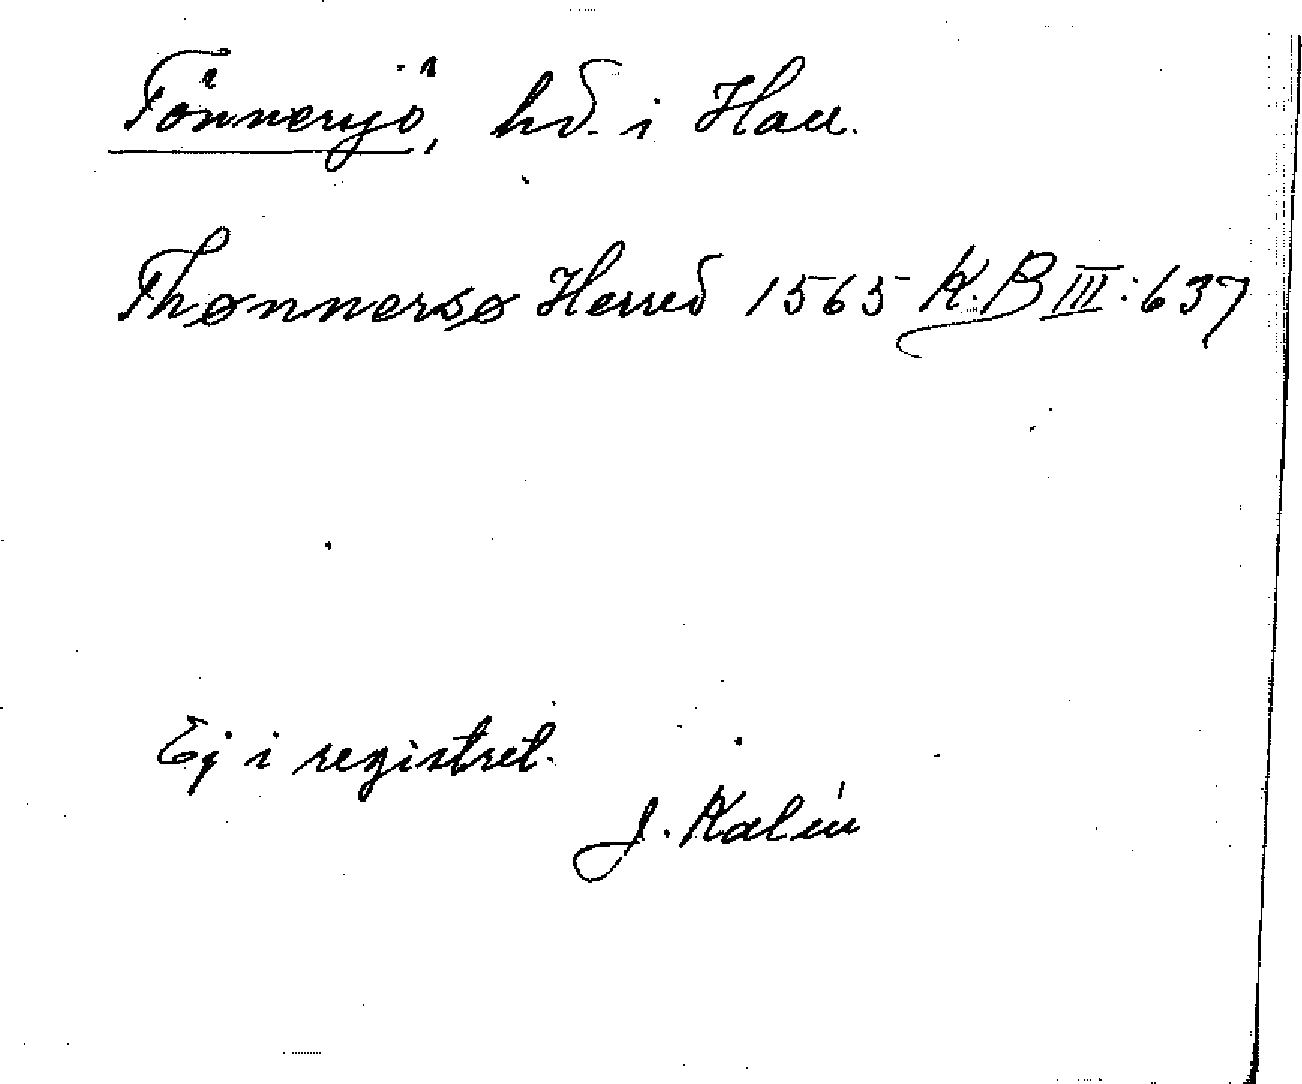 Tönnersjö, hd. i Hall.
Thønnersø Herred 1565 K.B III:637
Ej i registret.
J. Kalén